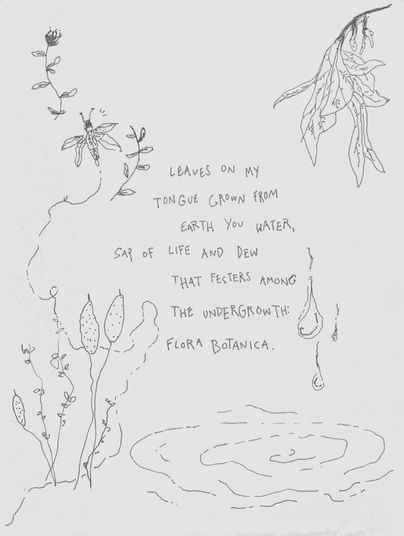 LEAVES ON MY
TONGUE GROWN FROM
EARTH YOU WATER,
SAP OF LIFE AND DEW
THAT FESTERS AMONG
THE UNDERGROWTH:
FLORA BOTANICA.